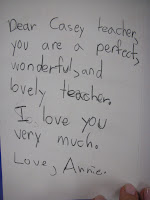 Dear Casey teacher,
you are a perfect,
wonderful, and
lovely teacher.
I love you
very much.
Love, Annie.